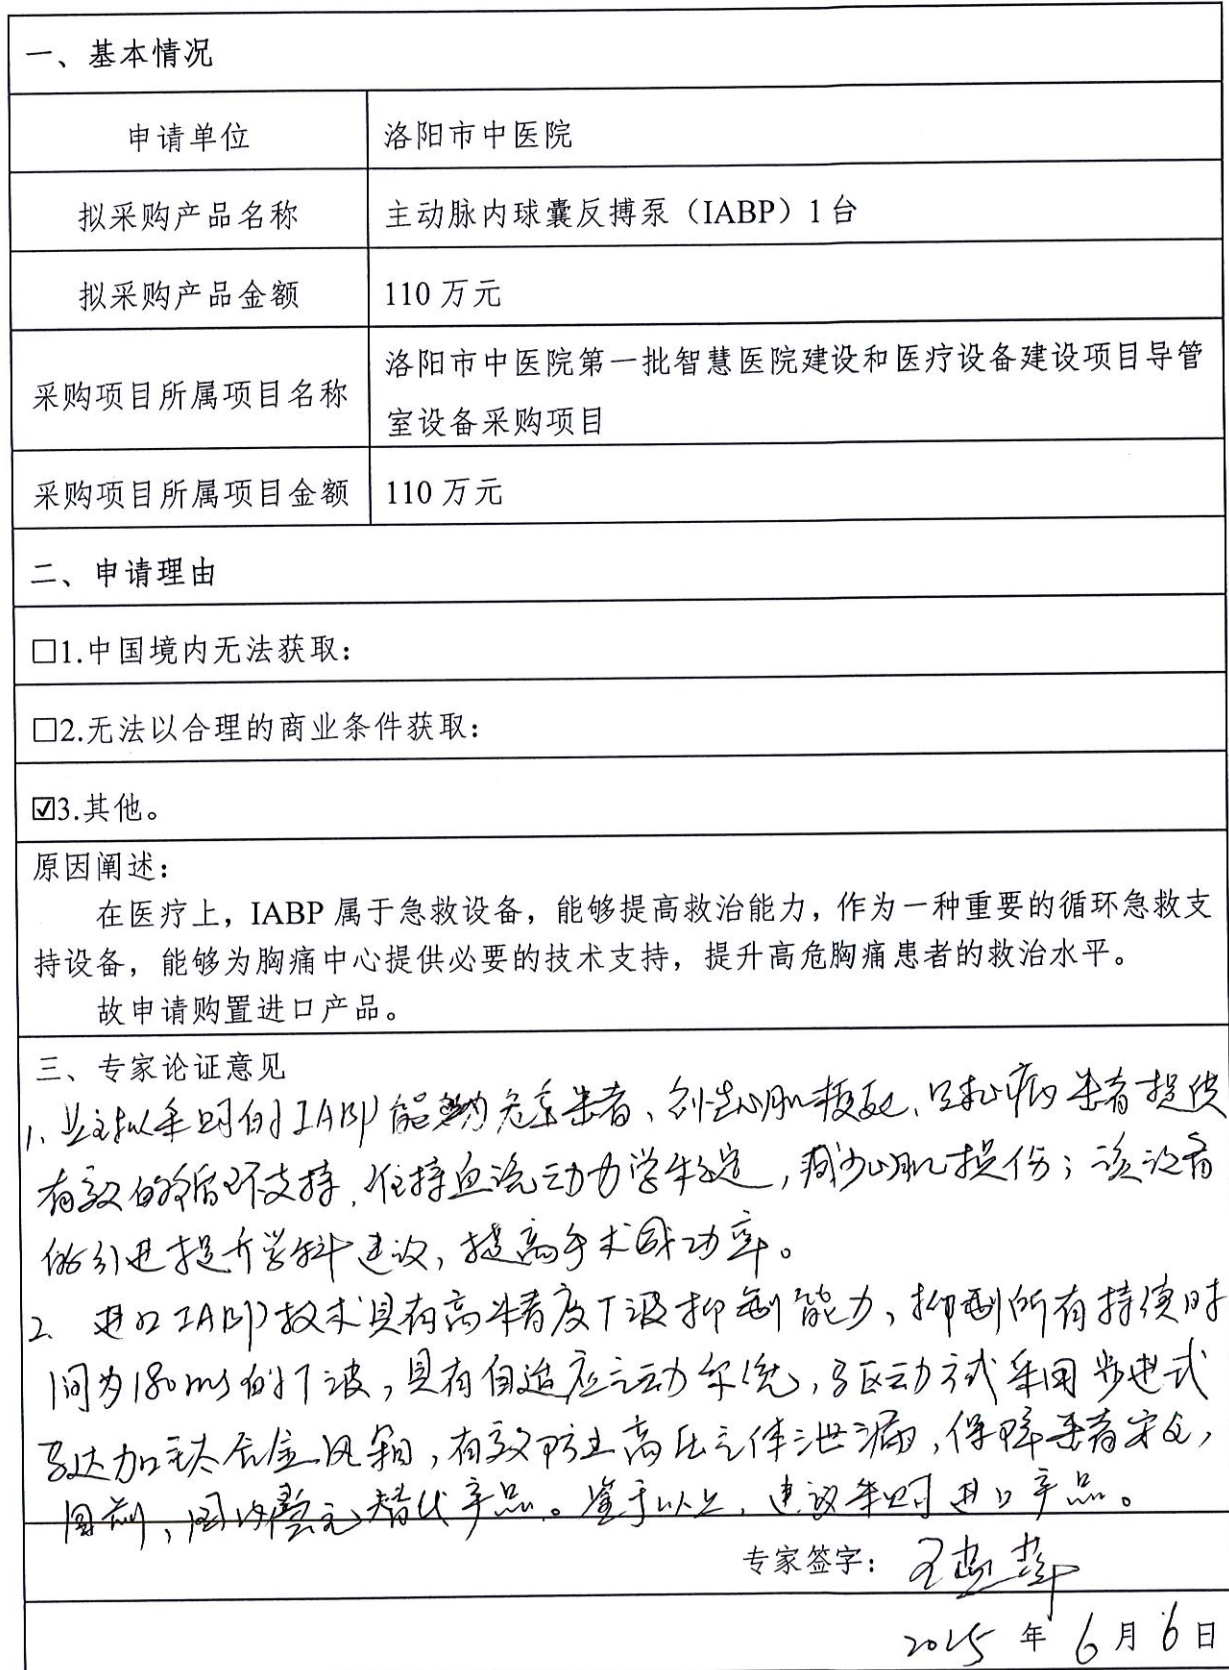 一、基本情况
申请单位
洛阳市中医院
拟采购产品名称
主动脉内球囊反搏泵（IABP）1台
拟采购产品金额
110万元
采购项目所属项目名称
洛阳市中医院第一批智慧医院建设和医疗设备建设项目导管
室设备采购项目
采购项目所属项目金额
110万元
二、申请理由
□1.中国境内无法获取：
□2.无法以合理的商业条件获取：
☑3.其他。
原因阐述：
在医疗上，IABP属于急救设备，能够提高救治能力，作为一种重要的循环急救支
持设备，能够为胸痛中心提供必要的技术支持，提升高危胸痛患者的救治水平。
故申请购置进口产品。
三、专家论证意见
1、业主拟采购的IABP能够为危重患者、急性心肌梗死、冠心病患者提供
有效的循环支持，维持血流动力学稳定，减少心肌损伤；该设备
的引进提升学科建设，提高手术成功率。
2、进口IABP技术具有高精度T波抑制能力，抑制所有持续时
间为180ms的T波，具有自适应运动系统，驱动方式采用步进式
马达加钛合金风箱，有效防止高压气体泄漏，保障患者安全，
目前，国内暂无替代产品。鉴于以上，建议采购进口产品。
专家签字：王
2025年6月6日